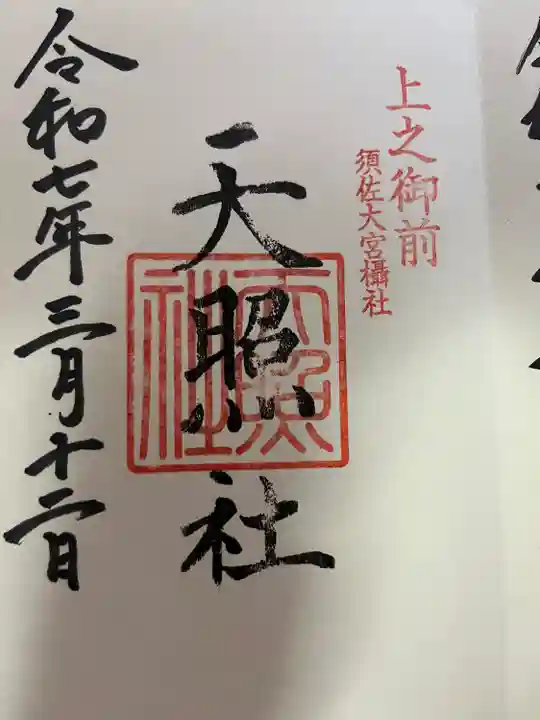 上之御前
須佐大宮攝社
天照社
天照社
令和七年三月十二日